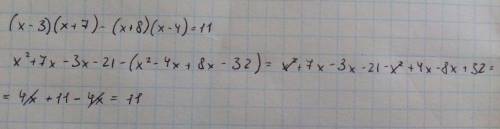 (x-3)(x+7)-(x+8)(x-4)=11
x²+7x-3x-21-(x²-4x+8x-32)=x²+7x-3x-21-x²+4x-8x+32=
=4x+11-4x=11